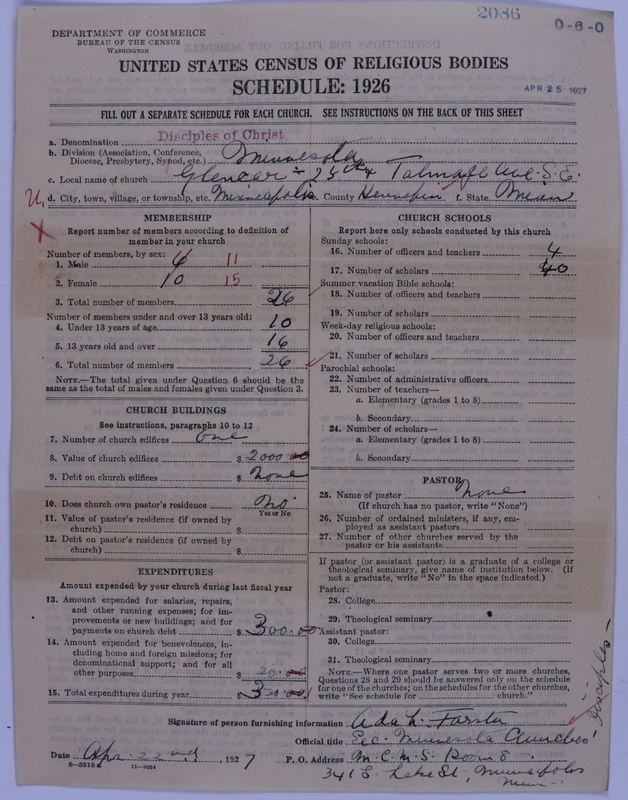 2086
0-6-0
DEPARTMENT OF COMMERCE
BUREAU OF THE CENSUS
WASHINGTON
UNITED STATES CENSUS OF RELIGIOUS BODIES
SCHEDULE: 1926
APR 25 1927
FILL OUT A SEPARATE SCHEDULE FOR EACH CHURCH. SEE INSTRUCTIONS ON THE BACK OF THIS SHEET
a. Denomination Disciples of Christ
b. Division (Association, Conference, Diocese, Presbytery, Synod, etc.) Minnesota
c. Local name of church Glencar - 25th & Talmage Ave. S.E.
d. City, town, village, or township, etc. Minneapolis e. County Hennepin f. State Minn
MEMBERSHIP
Report number of members according to definition of
member in your church
Number of members, by sex:
1. Male 6 11
2. Female 10 15
3. Total number of members 26
Number of members under and over 13 years old:
4. Under 13 years of age 10
5. 13 years old and over 16
6. Total number of members 26
NOTE.—The total given under Question 6 should be the
same as the total of males and females given under Question 3.
CHURCH BUILDINGS
See instructions, paragraphs 10 to 12
7. Number of church edifices one
8. Value of church edifices $ 2000 00
9. Debt on church edifices $ None
10. Does church own pastor's residence No
Yes or No
11. Value of pastor's residence (if owned by
church) $
12. Debt on pastor's residence (if owned by
church) $
EXPENDITURES
Amount expended by your church during last fiscal year
13. Amount expended for salaries, repairs,
and other running expenses; for im-
provements or new buildings; and for
payments on church debt $ 300.00
14. Amount expended for benevolences, in-
cluding home and foreign missions; for
denominational support; and for all
other purposes $ 20.00
15. Total expenditures during year $ 320.00
CHURCH SCHOOLS
Report here only schools conducted by this church
Sunday schools:
16. Number of officers and teachers 4
17. Number of scholars 40
Summer vacation Bible schools:
18. Number of officers and teachers
19. Number of scholars
Week-day religious schools:
20. Number of officers and teachers
21. Number of scholars
Parochial schools:
22. Number of administrative officers
23. Number of teachers—
a. Elementary (grades 1 to 8)
b. Secondary
24. Number of scholars—
a. Elementary (grades 1 to 8)
b. Secondary
PASTOR
25. Name of pastor None
(If church has no pastor, write "None")
26. Number of ordained ministers, if any, em-
ployed as assistant pastors
27. Number of other churches served by the
pastor or his assistants
If pastor (or assistant pastor) is a graduate of a college or
theological seminary, give name of institution below. (If
not a graduate, write "No" in the space indicated.)
Pastor:
28. College
29. Theological seminary
Assistant pastor:
30. College
31. Theological seminary
NOTE.—Where one pastor serves two or more churches,
Questions 28 and 29 should be answered only on the schedule
for one of the churches; on the schedules for the other churches,
write "See schedule for church."
Disciples -
Signature of person furnishing information Ada L. Forster
Official title Sec. Minnesota Churches
Date Apr. 22nd, 1927 P. O. Address M.C.M.S. Room 8
8-5518 11-9054
341 E. Lake St., Minneapolis
Minn